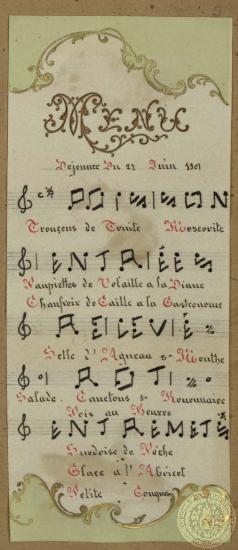 Menu
Déjeuner Du 27 Juin 1901
POISSON
Tronçons de Truite Moscovite
ENTRÉES
Paupiettes de Volaille a la Diane
Chaufroix de Caille a la Gastronome
RELEVÉ
Selle d'Agneau s- Menthe
ROTI
Salade. Canetons s- Rouennaise
Pois au Beurre
ENTREMETS
Suedoise de Pêche
Glace a l'Abricot
Petite Coupe